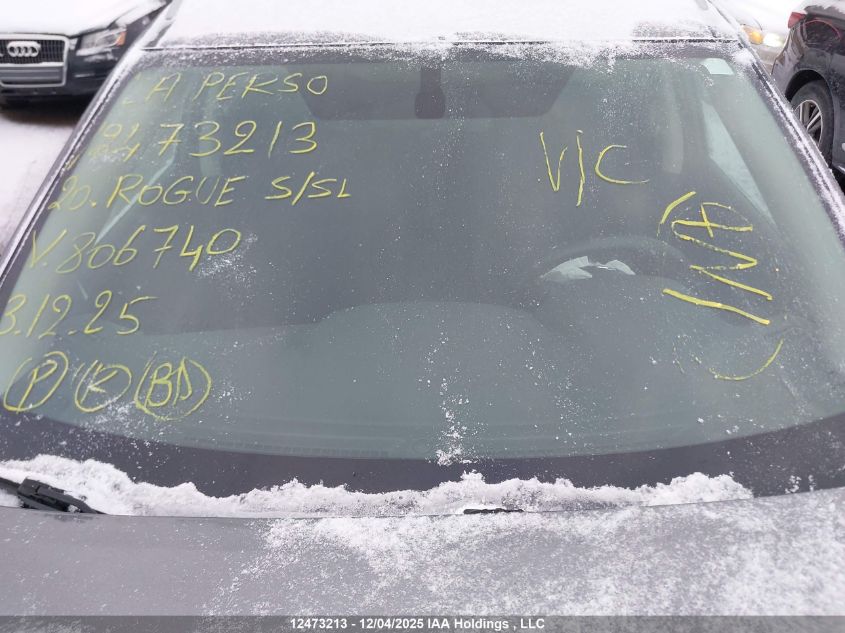 LA PERSO
12473213
20. ROGUE S/SL
V. 806740
3.12.25
P K BD
V/C
12473213 - 12/04/2025 IAA Holdings , LLC